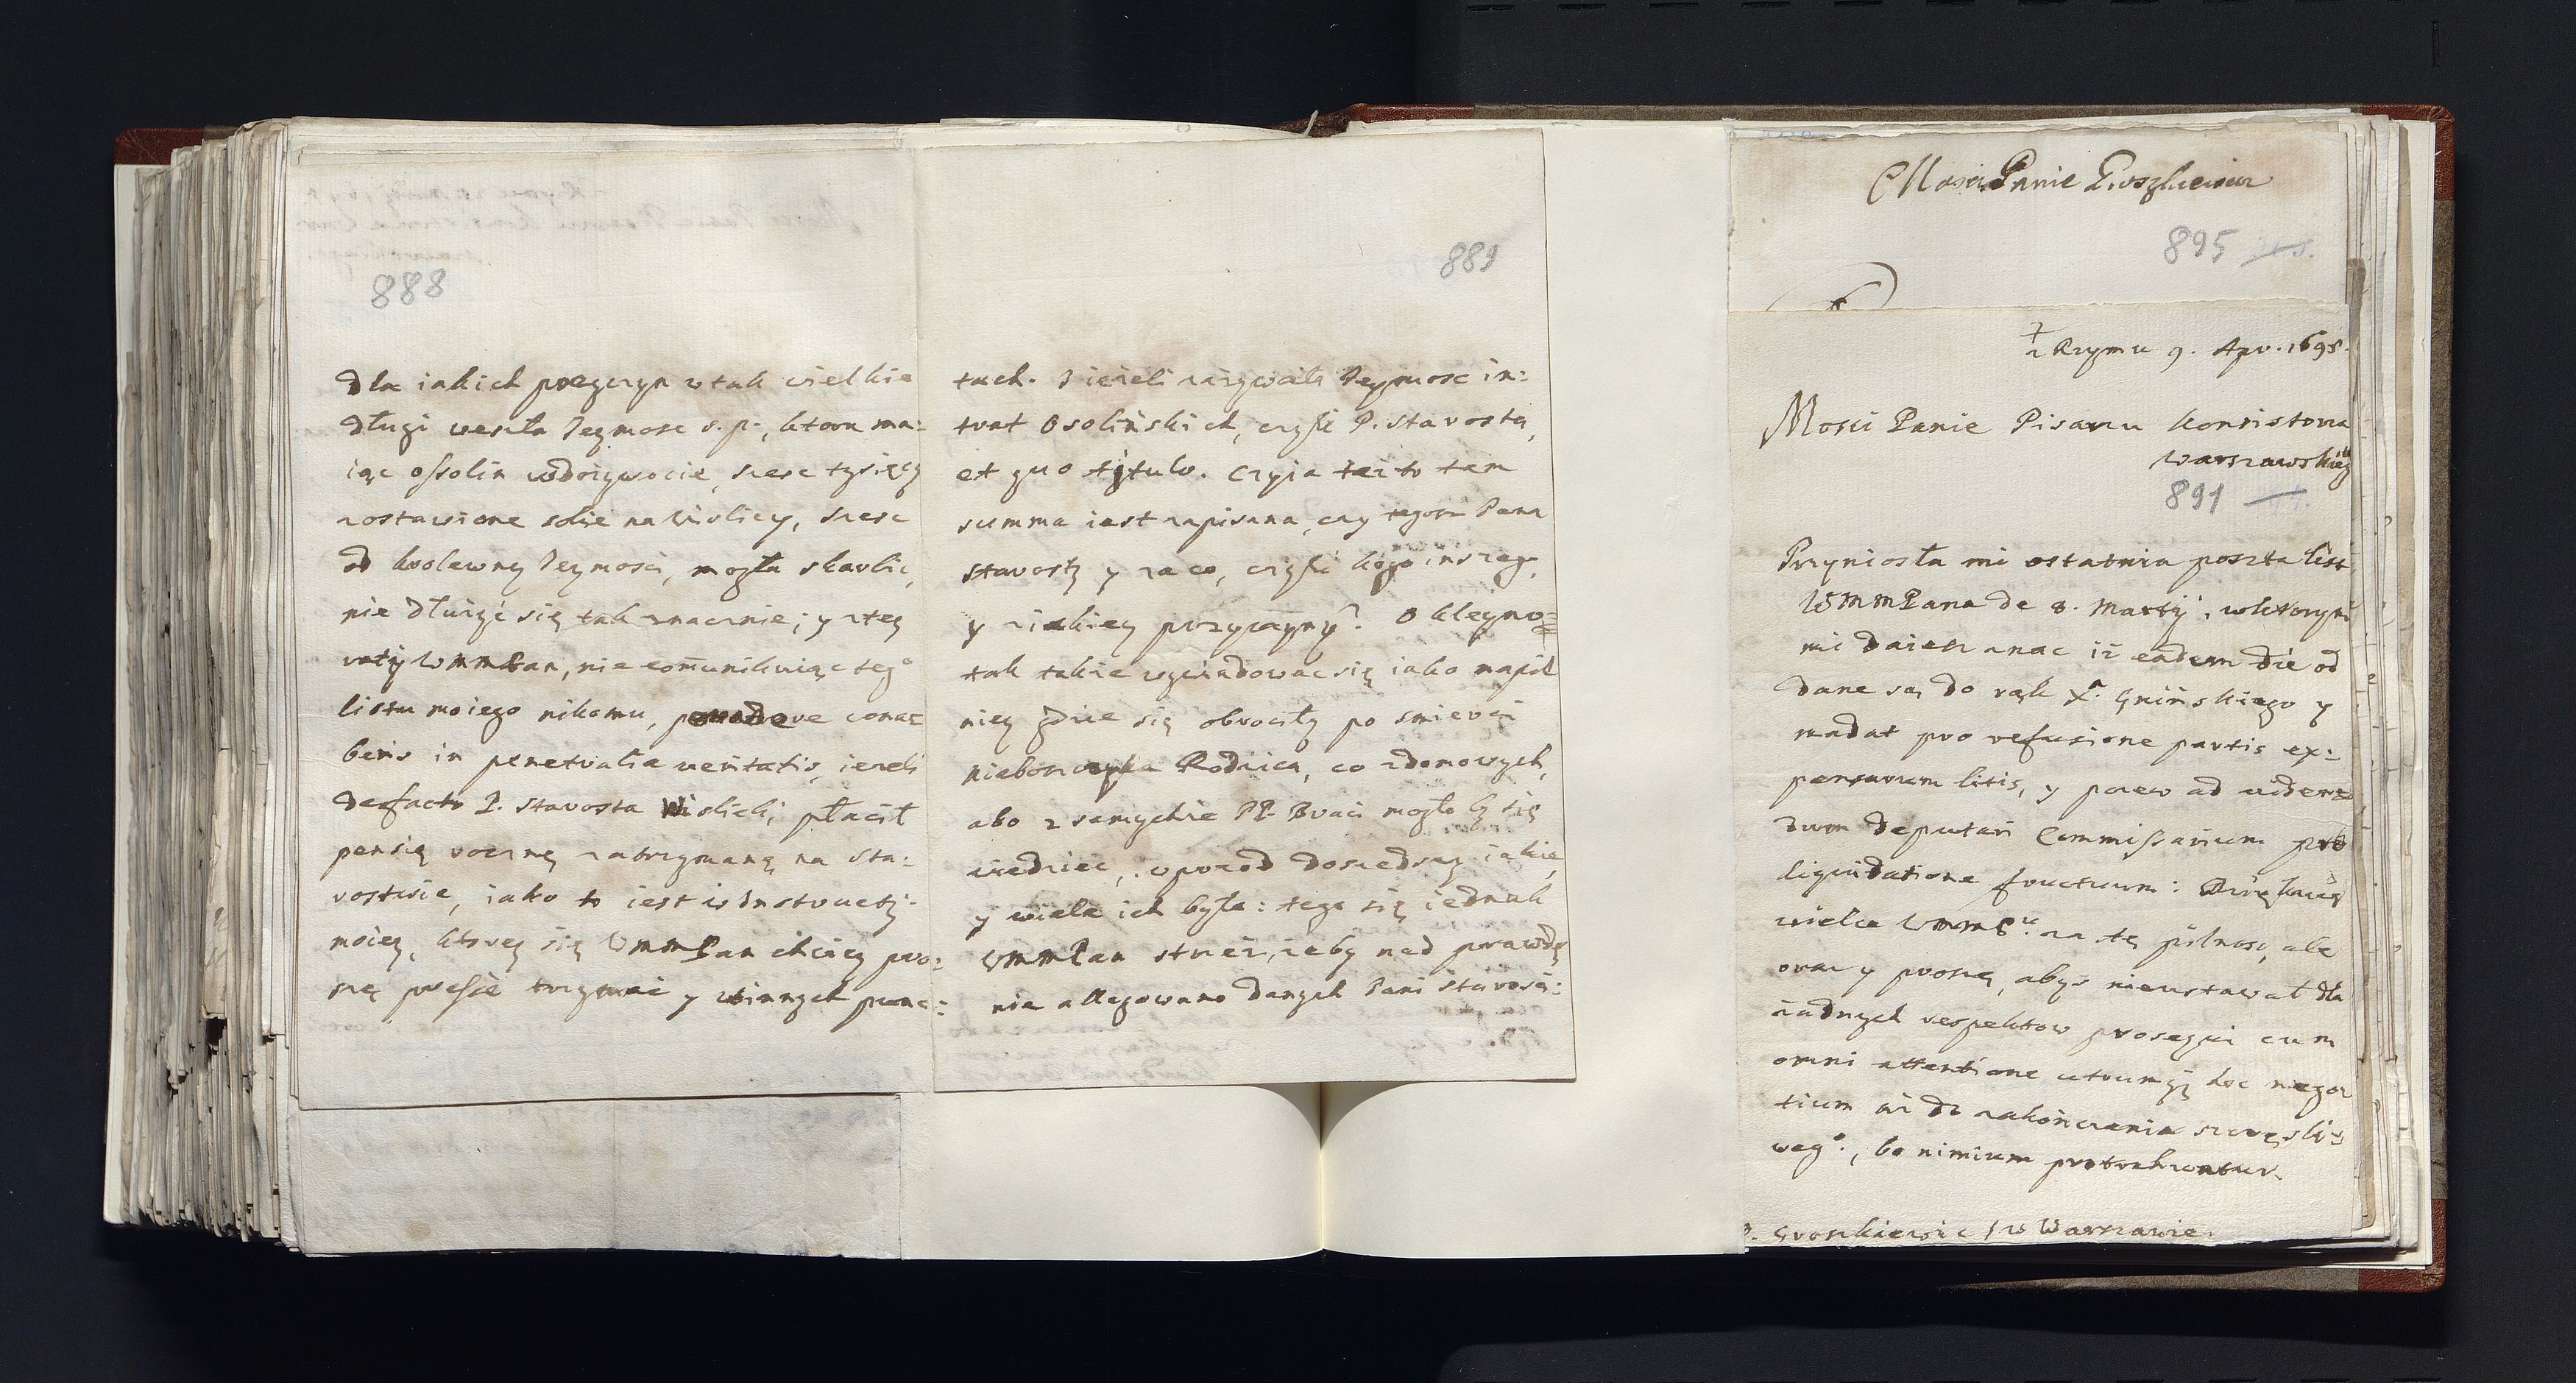 888
dla iakich przyczyn w tak wielkie
długi weszła Jeymosc s. p., ktora ma:
iąc ossolin w dozywocie, szesc tysięcy
zostawione sobie na Wislicy, szesc
od krolewny Jeymosci, mogła skarbic,
nie dłuzyć się tak znacznie; y z tey
raty WMMPan, nie com̃unikuiąc teg°
listu moiego nikomu, penetrare conac
beris in penetralia veritatis, iezeli
de facto P. starosta Wislicki, płacił
pensią roczną zatrzymaną na sta:
rostwie, iako to iest w Instructÿ
moiey, ktorey się WMMPan chciey pro:
szę presse trzymac y w innych punc:
889
tach. Iezeli zazywała Jeymosc in:
trat Osolińskich, czyli P. starosta,
et quo tÿtulo. Czyia tez to tam
summa iest zapisana, czy tegosz Pana
starosty y za co, czyli kogo inszego,
y z iakiey przyczyny? O kleyno:
tak takze wywiadowac się iako napil
niey gdzie się obrociły po smierci
nieboszczyka Rodzica, co z domowych,
abo z samychze PP. Braci mogło by się
wiedziec, wprzod doszedszy iakie,
y wiele ich było: tego się iednak
WMMPan strzez, zeby nad prawdę
nie allegowano danych Pani starosci:
Mosci Panie Groszkiewicz
895
z Rzymu 9. Apr. 1695.
Mosci Panie Pisarzu Konsistorza
Warszawskieg°
891
Przyniosła mi ostatnia poszta list
WMMPana de 8. Martÿ, w ktorym
mi daiesz znac iz eadem die od
dane są do rąk X.ª Gnińskiego y
madat pro refusione partis ex:
pensarum litis, y pozew ad viden:
dum deputari Commissarium pro
liquidatione fructuum: Dziękuię
wielce WMMPu za tę pilnosc, ale
oraz y proszę, abys nieustawał dla
zadnych respektow prosequi cum
omni attentione utrumqȝ hoc nego
tium az do zakończenia szczęsli:
weg°., bo nimium protrahuntur.
P. Groszkiewic w Warszawie.